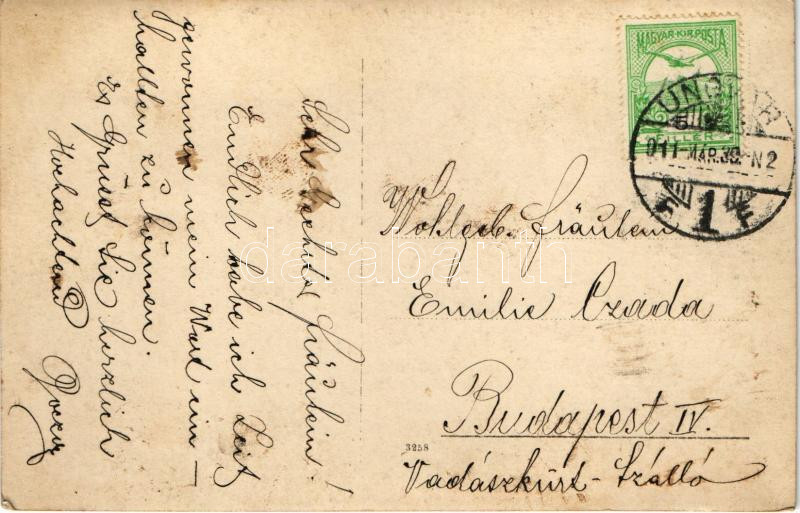 Sehr geehrtes Fräulein!
Endlich habe ich Zeit
gewonnen mein Wort ein-
hallten zu können.
Es Grüsst Sie herzlich
Hochachtend
Wohlgeb. Fräulein
Emilie Czada
Budapest IV.
Vadászkürt-Szálló
3258
MAGYAR·KIR·POSTA
FILLÉR
UNGVÁR
911 MÁR.30. N2
1
darabanth